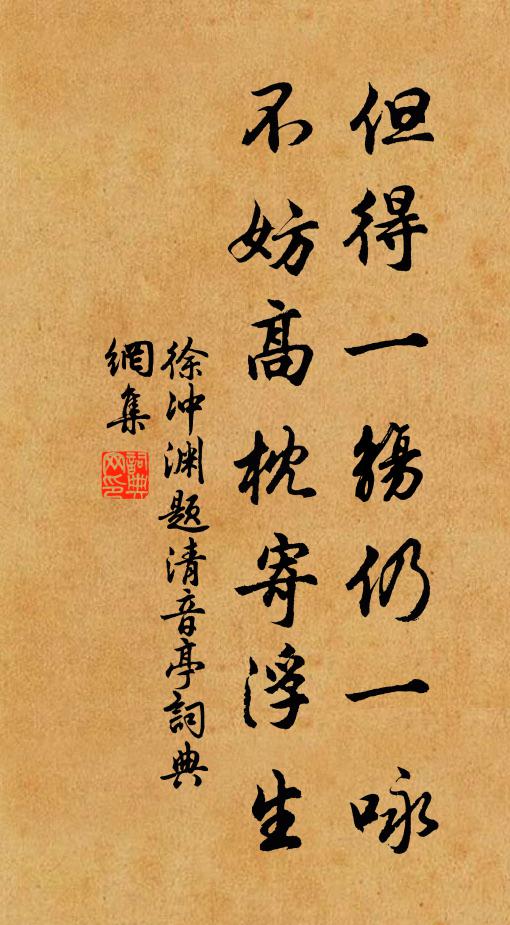 但得一觴仍一咏
不妨高枕寄浮生
徐冲渊题清音亭詞典
網集
詞典
网印